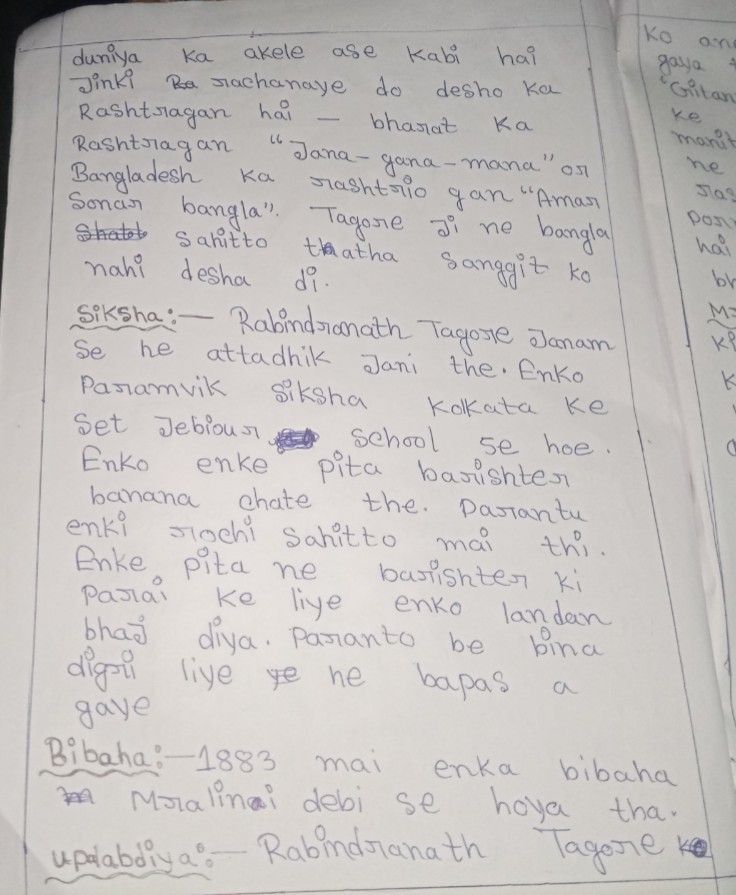 duniya ka akele ase Kabi hai
Jinki rachanaye do desho ka
Rashtragan hai - bharat Ka
Rashtragan "Jana-gana-mana" or
Bangladesh Ka rashtrio gan "Amar
Sonar bangla". Tagore Ji ne bangla
sahitto thatha sanggit ko
nahi desha di.
Siksha:- Rabindranath Tagore Janam
se he attadhik Jani the. Enko
Paramvik siksha Kolkata Ke
Set Jebiour school se hoe.
Enko enke pita barishter
banana chate the. parantu
enki rochi sahitto mai thi.
Enke pita ne barishter ki
parai ke liye enko landan
bhaj diya. paranto be bina
digri liye ye he bapas a
gaye
Bibaha:- 1883 mai enka bibaha
Mralinai debi se hoya tha.
upalabdiya:- Rabindranath Tagore ke
Ko
gaya
"Gitan
Ke
manit
ne
ras
por
hai
bh
Ki
K